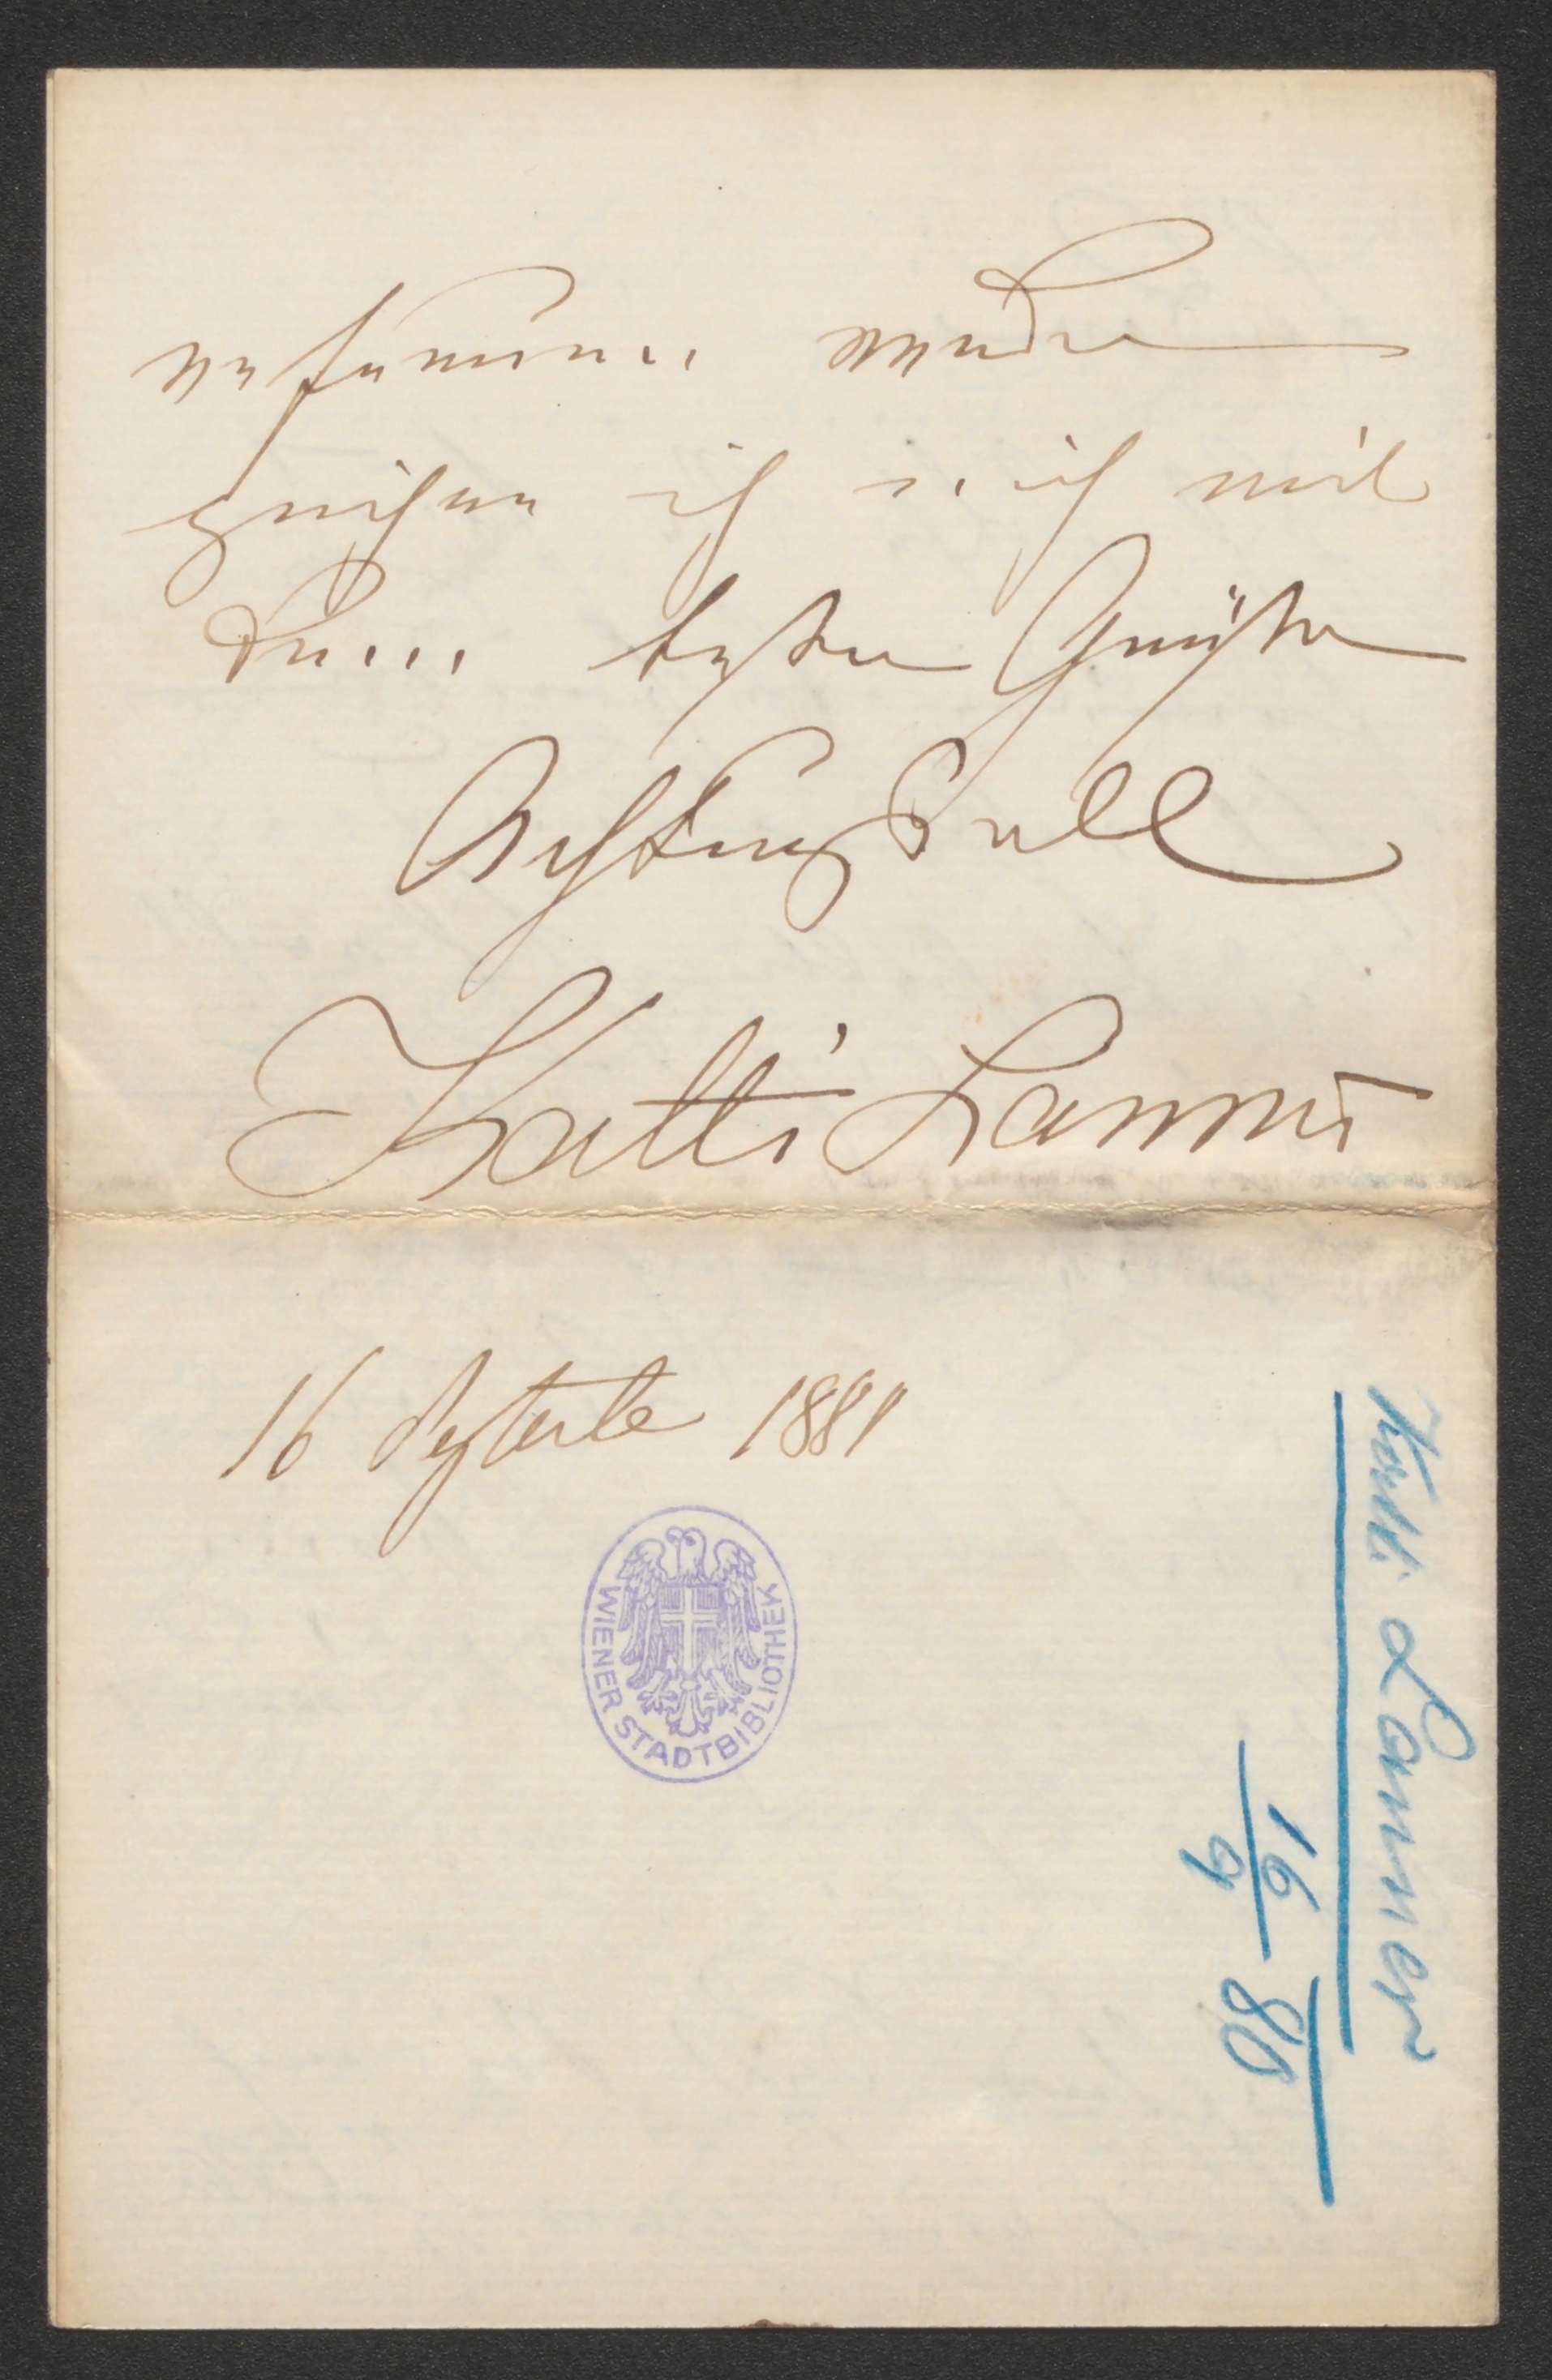 werden
zeichne ich mich mit
den besten Grüßen
Achtungsvoll
Katti Lanner
16 1881
WIENER STADTBIBLIOTHEK
Katti Lanner
16
9
80